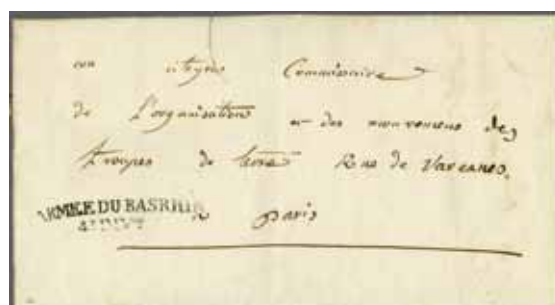 au citoyen Commissaire
de L'organisation et des mouvemens des
troupes de terre Rue de Varennes.
ARMÉE DU BAS RHIN
a Paris